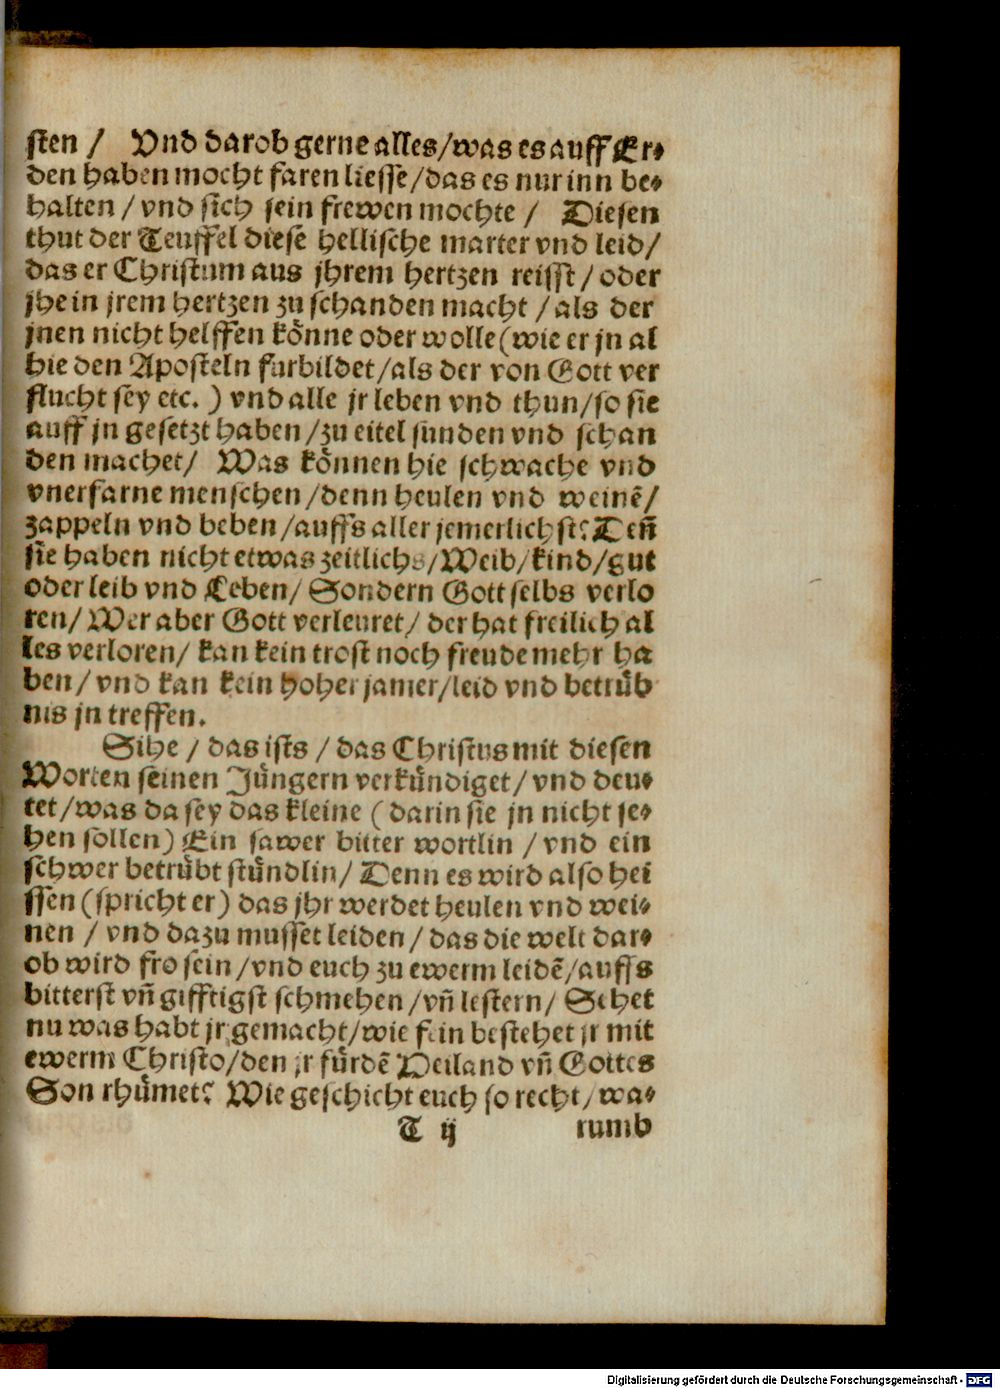 sten / Vnd darob gerne alles/was es auff Er⸗
den haben mocht faren liesse/das es nur inn be⸗
halten / vnd sich sein frewen mochte / Diesen
thut der Teuffel diese hellische marter vnd leid/
das er Christum aus jhrem hertzen reisst/ oder
jhe in jrem hertzen zu schanden macht / als der
jnen nicht helffen koͤnne oder wolle (wie er jn al
hie den Aposteln furbildet/als der von Gott ver
flucht sey etc. ) vnd alle jr leben vnd thun/so sie
auff jn gesetzt haben /zu eitel sunden vnd schan
den machet/ Was koͤnnen hie schwache vnd
vnerfarne menschen /denn heulen vnd weinē/
zappeln vnd beben /auffs aller jemerlichst? Deñ
sie haben nicht etwas zeitlichs/Weib/kind/gut
oder leib vnd Leben/ Sondern Gott selbs verlo
ren/ Wer aber Gott verleuret/ der hat freilich al
les verloren/ kan kein trost noch freude mehr ha
ben/ vnd kan kein hoher jamer/leid vnd betruͤb
nis jn treffen.
Sihe / das ists / das Christus mit diesen
Worten seinen Juͤngern verkuͤndiget/ vnd deu⸗
tet/was da sey das kleine ( darin sie jn nicht se⸗
hen sollen) Ein sawer bitter wortlin / vnd ein
schwer betruͤbt stuͤndlin/ Denn es wird also hei
ssen (spricht er) das jhr werdet heulen vnd wei⸗
nen / vnd dazu musset leiden / das die welt dar⸗
ob wird fro sein /vnd euch zu ewerm leidē/auffs
bitterst vñ gifftigst schmehen /vñ lestern/ Sehet
nu was habt jr gemacht/wie fein bestehet jr mit
ewerm Christo/den jr fuͤrdē Heiland vñ Gottes
Son rhuͤmet? Wie geschicht euch so recht/wa⸗
T ij rumb
Digitalisierung gefördert durch die Deutsche Forschungsgemeinschaft - DFG